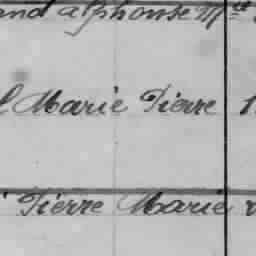 and alphonse M
l Marie Pierre 1
i Pierre Marie